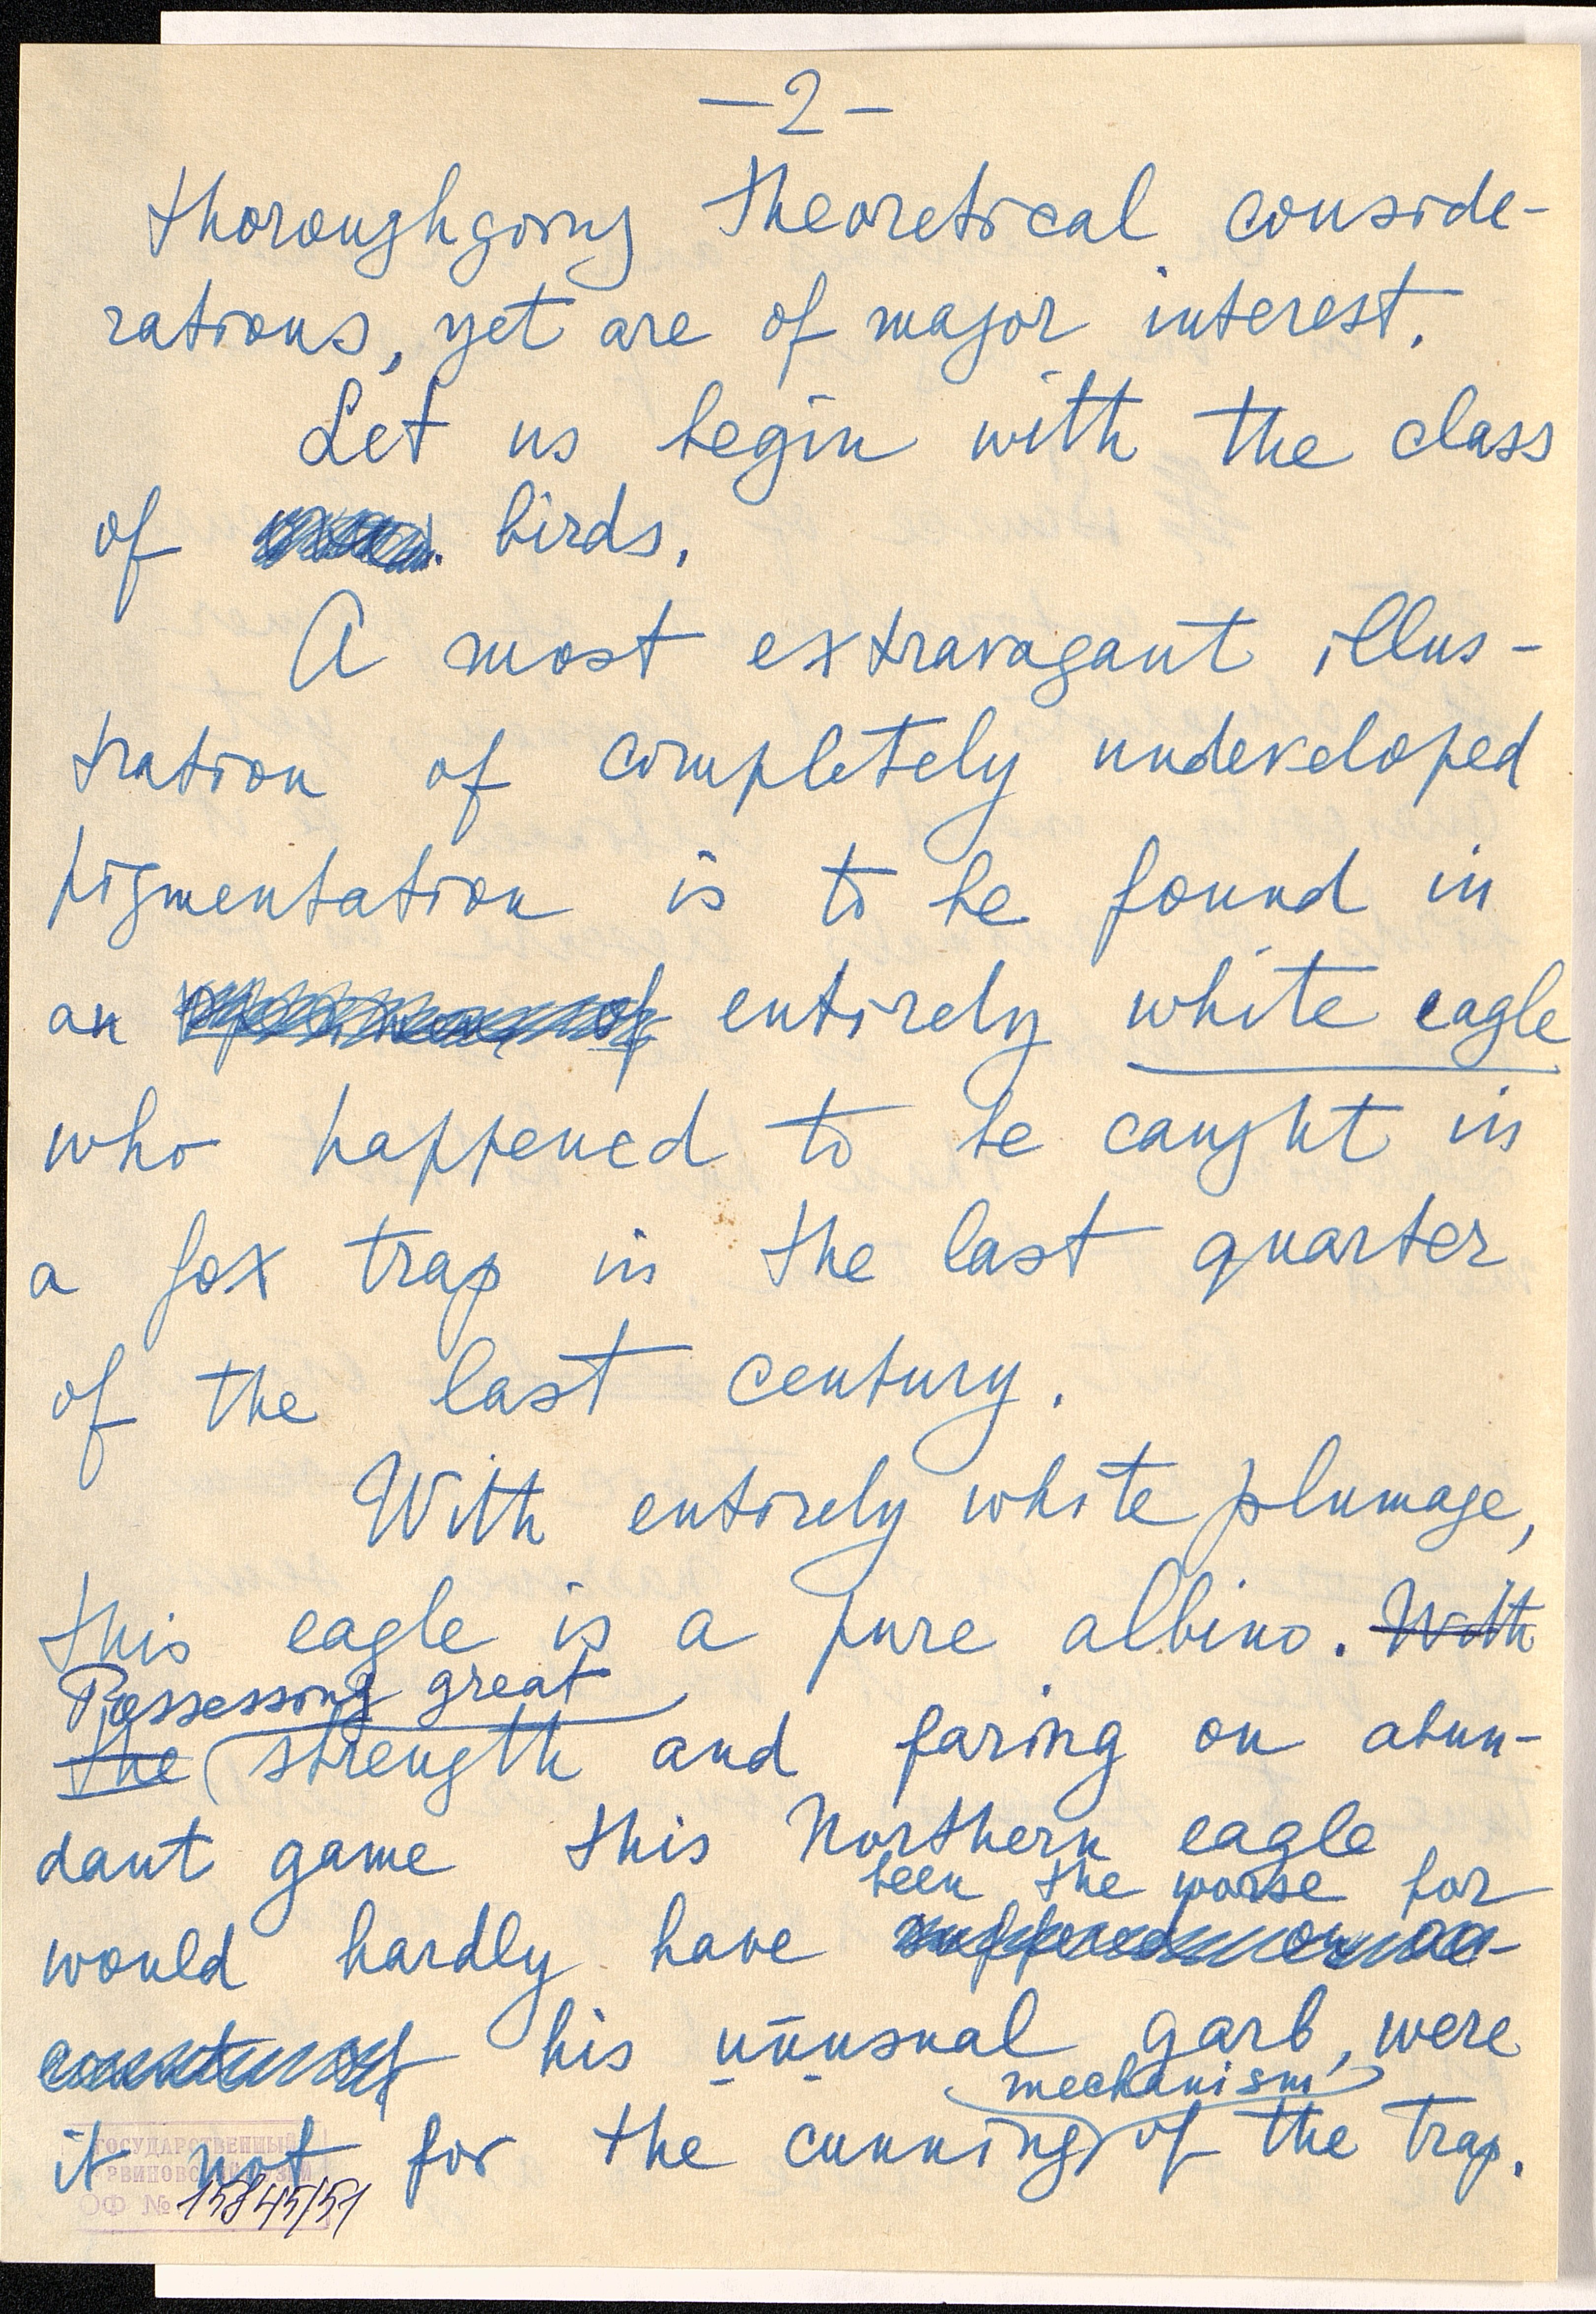 —2—
thoroughgoing theoretical conside-
rations, yet are of major interest.
Let us begin with the class
of birds.
A most extravagant illus-
tration of completely undeveloped
pigmentation is to be found in
an specimen of entirely white eagle
who happened to be caught in
a fox trap in the last quarter
of the last century.
With entirely white plumage,
this eagle is a pure albino. With
Possessing great
the strength and faring on abun-
dant game this Northern eagle
been the worse for
would hardly have suffered on ac-
count of his unusual garb, were
mechanism
it not for the cunning of the trap.
ГОСУДАРСТВЕННЫЙ
ДАРВИНОВСКИЙ МУЗЕЙ
ОФ № 15845/51